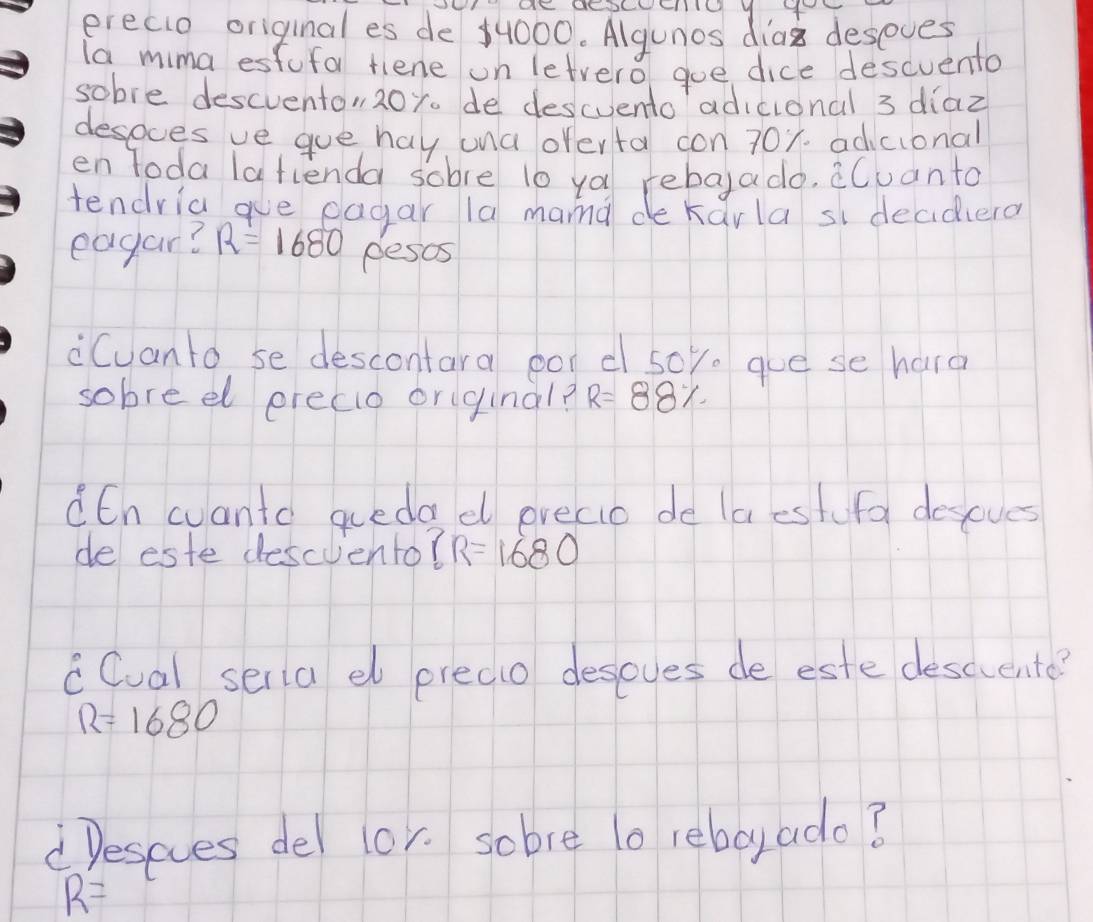 precio original es de $4000. Algunos díaz despues
la mima estufa tiene un letrero que dice descuento
sobre descuento "20% de descuento adicional 3 díaz
despues ve que hay una oferta con 70% adicional
en toda la tienda sobre lo ya rebajado. ¿Cuanto
tendría que pagar la mamá de Karla si decidiera
pagar? R= 1680 pesos
¿Cuanto se descontara por el 50% que se hara
sobre el precio original? R= 88%.
¿En cuanto queda el precio de la estufa despues
de este descuento? R= 1680
¿Cual seria el precio despues de este descuento?
R= 1680
¿Despues del 10% sobre lo rebayado?
R=